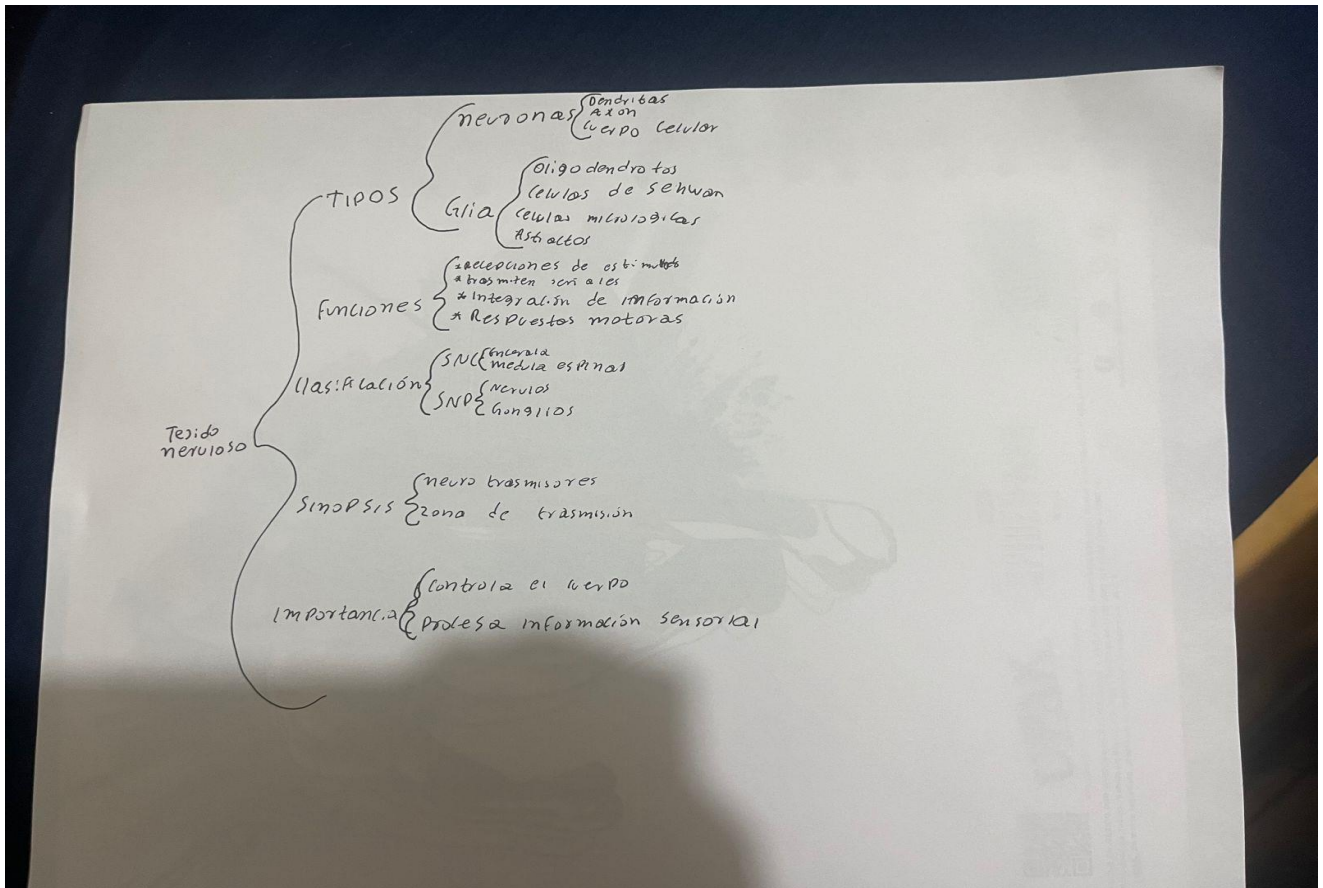 Tejido
nervioso
TIPOS
neuronas
Dendritas
Axon
Cuerpo Celular
Glia
Oligodendrotos
Celulas de sehwan
Celulas micrologicas
Astroctos
Funciones
*Recepciones de estimulos
*trasmiten señales
*Integración de imformación
*Respuestas motoras
Clasificación
SNC
medula espinas
SNP
Nervios
Ganglios
Sinopsis
neuro trasmisores
zona de trasmisión
Importancia
Controla el cuerpo
Procesa información sensorial